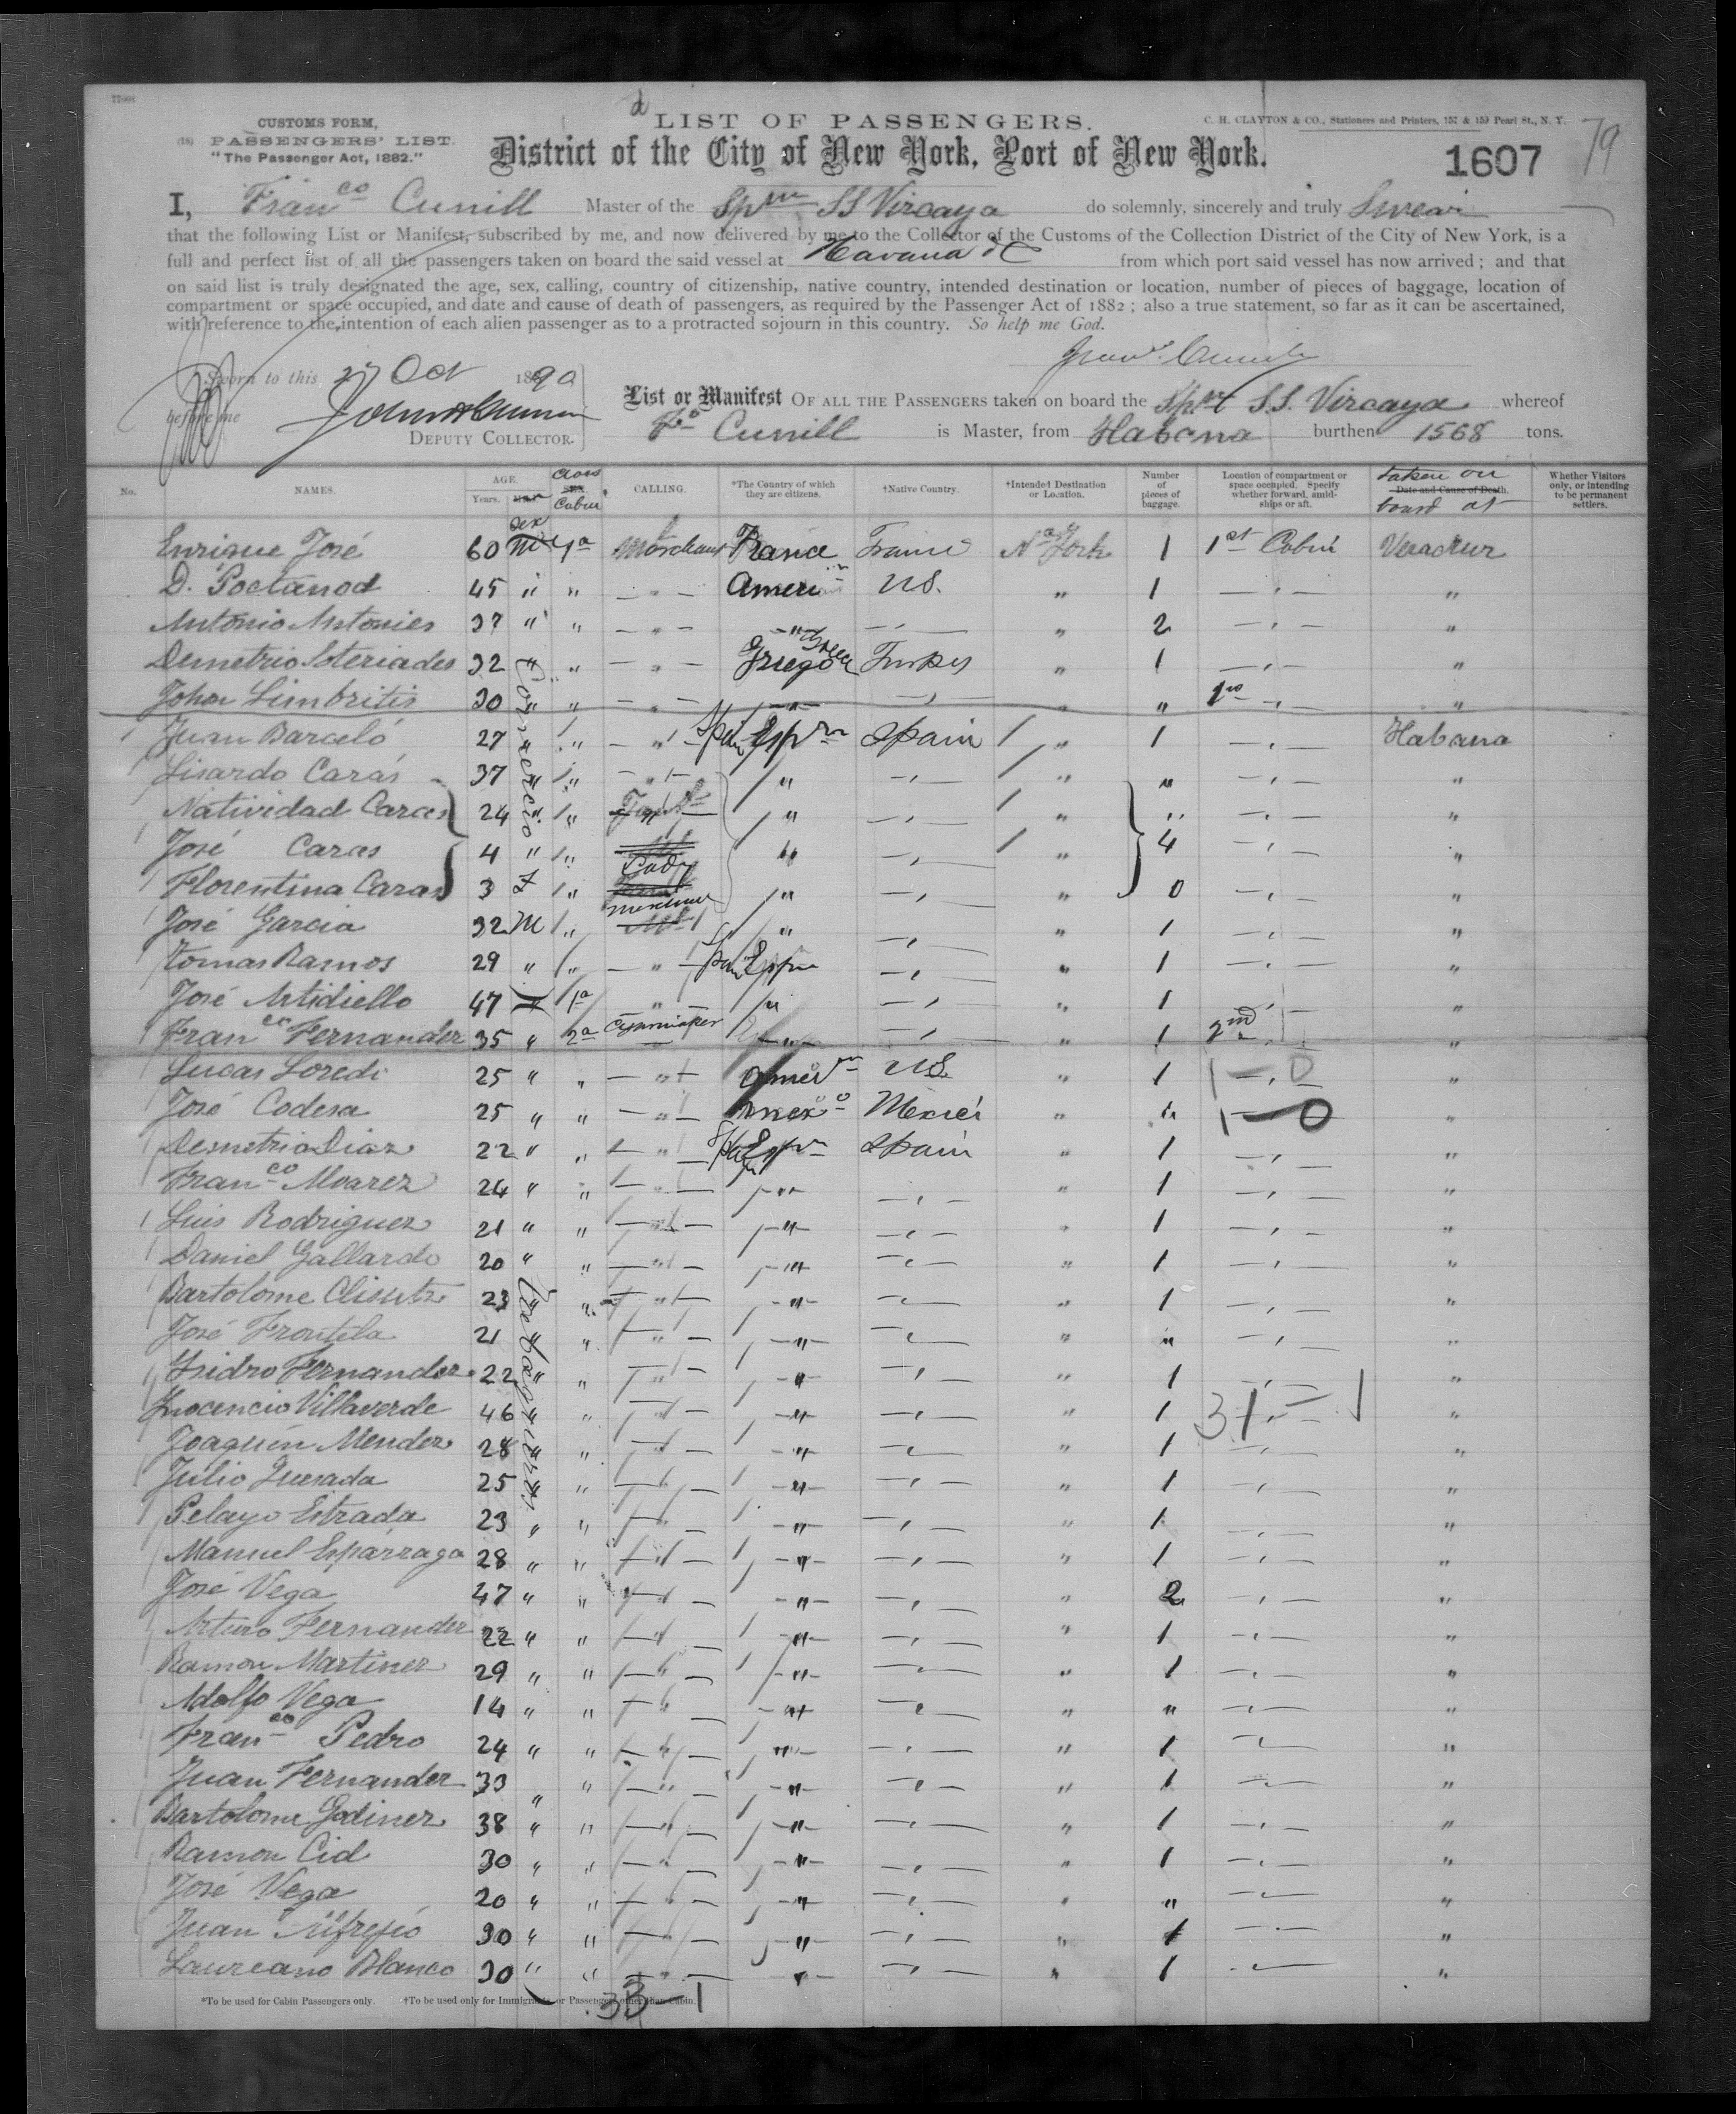 77008
CUSTOMS FORM,
(18) PASSENGERS' LIST.
"The Passenger Act, 1882."
LIST OF PASSENGERS.
C. H. CLAYTON & CO., Stationers and Printers, 157 & 159 Pearl St., N. Y.
District of the City of New York, Port of New York.
1607
79
I, Franco Cunill Master of the Spn SS Vizcaya do solemnly, sincerely and truly Swear
that the following List or Manifest, subscribed by me, and now delivered by me to the Collector of the Customs of the Collection District of the City of New York, is a
full and perfect list of all the passengers taken on board the said vessel at Havana &c from which port said vessel has now arrived; and that
on said list is truly designated the age, sex, calling, country of citizenship, native country, intended destination or location, number of pieces of baggage, location of
compartment or space occupied, and date and cause of death of passengers, as required by the Passenger Act of 1882; also a true statement, so far as it can be ascertained,
with reference to the intention of each alien passenger as to a protracted sojourn in this country. So help me God.
Sworn to this 27 Oct 1890
before me
DEPUTY COLLECTOR.
List or Manifest OF ALL THE PASSENGERS taken on board the S.S. Vizcaya whereof
Fo Cunill is Master, from Habana burthen 1568 tons.
No. NAMES. AGE. Years. Sex Class Cabin CALLING. *The Country of which they are citizens. †Native Country. †Intended Destination or Location. Number of pieces of baggage. Location of compartment or space occupied. Specify whether forward, amidships or aft. Date and Cause of Death. taken on board at Whether Visitors only, or intending to be permanent settlers.
Enrique José 60 M 1a Merchant France France N. York 1 1st Cabin Veracruz
D. 45 " " — " — Amern US. " 1 — " — "
Antonio 37 " " — " — — " — — " — " 2 — " — "
Demetrio Soteriades 32 " " — " — Griego Greece Turkey " 1 — " — "
John Limbritis 30 " " — " — — " — — " — " " — " — "
Juan Barceló 27 " " — " — Spain Espn Spain " 1 — " — Habana
Lisardo Caras 37 " " — " — " — " — " " — " — "
Natividad Caras 24 " " " — " — " " — " — "
José Caras 4 " " " — " — " 4 — " — "
Florentina Caras 3 F " " — " — " 0 — " "
José Garcia 32 M " " — " — " 1 — " — "
Tomas Ramos 29 " " — " — Spain Espn — " — " 1 — " — "
José Artidiello 47 " 1a " — " — " — " 1 "
Franco Fernandez 35 " 2a Cigarmaker — " — — " — " 1 2nd "
Lucas Loredi 25 " " — " — Amern US. " 1 "
José Codesa 25 " " — " — Mexo Mexici " " "
Demetrio Diaz 22 " " — " — Spain Espn Spain " 1 — " — "
Franco Alvarez 24 " " — " — — " — — " — " 1 — " — "
Luis Rodriguez 21 " " — " — — " — — " — " 1 — " — "
Daniel Gallardo 20 " " — " — — " — — " — " 1 — " — "
Bartolome 23 " " — " — — " — — " — " 1 — " — "
José Frontela 21 " " — " — — " — — " — " " — " — "
Isidro Fernandez 22 " " — " — — " — — " — " 1 — " — "
Inocencio Villaverde 46 " " — " — — " — — " — " 1 — " — "
Joaquin Mendez 28 " " — " — — " — — " — " 1 — " — "
Julio Quesada 25 " " — " — — " — — " — " 1 — " — "
Pelayo Estrada 23 " " — " — — " — — " — " 1 — " — "
Manuel Esparraga 28 " " — " — — " — — " — " 1 — " — "
José Vega 47 " " — " — — " — — " — " 2 — " — "
Arturo Fernandez 22 " " — " — — " — — " — " 1 — " — "
Ramon Martinez 29 " " — " — — " — — " — " 1 — " — "
Adolfo Vega 14 " " — " — — " — — " — " " — " — "
Franco Pedro 24 " " — " — — " — — " — " 1 — " — "
Juan Fernandez 33 " " — " — — " — — " — " 1 — " — "
Bartolome Godinez 38 " " — " — — " — — " — " 1 — " — "
Ramon Cid 30 " " — " — — " — — " — " 1 — " — "
José Vega 20 " " — " — — " — — " — " " — " — "
Juan 30 " " — " — — " — — " — " 1 — " — "
Laureano Blanco 30 " " — " — — " — — " — " 1 — " — "
*To be used for Cabin Passengers only. †To be used only for Immigrants or Passengers other than Cabin.
33-1